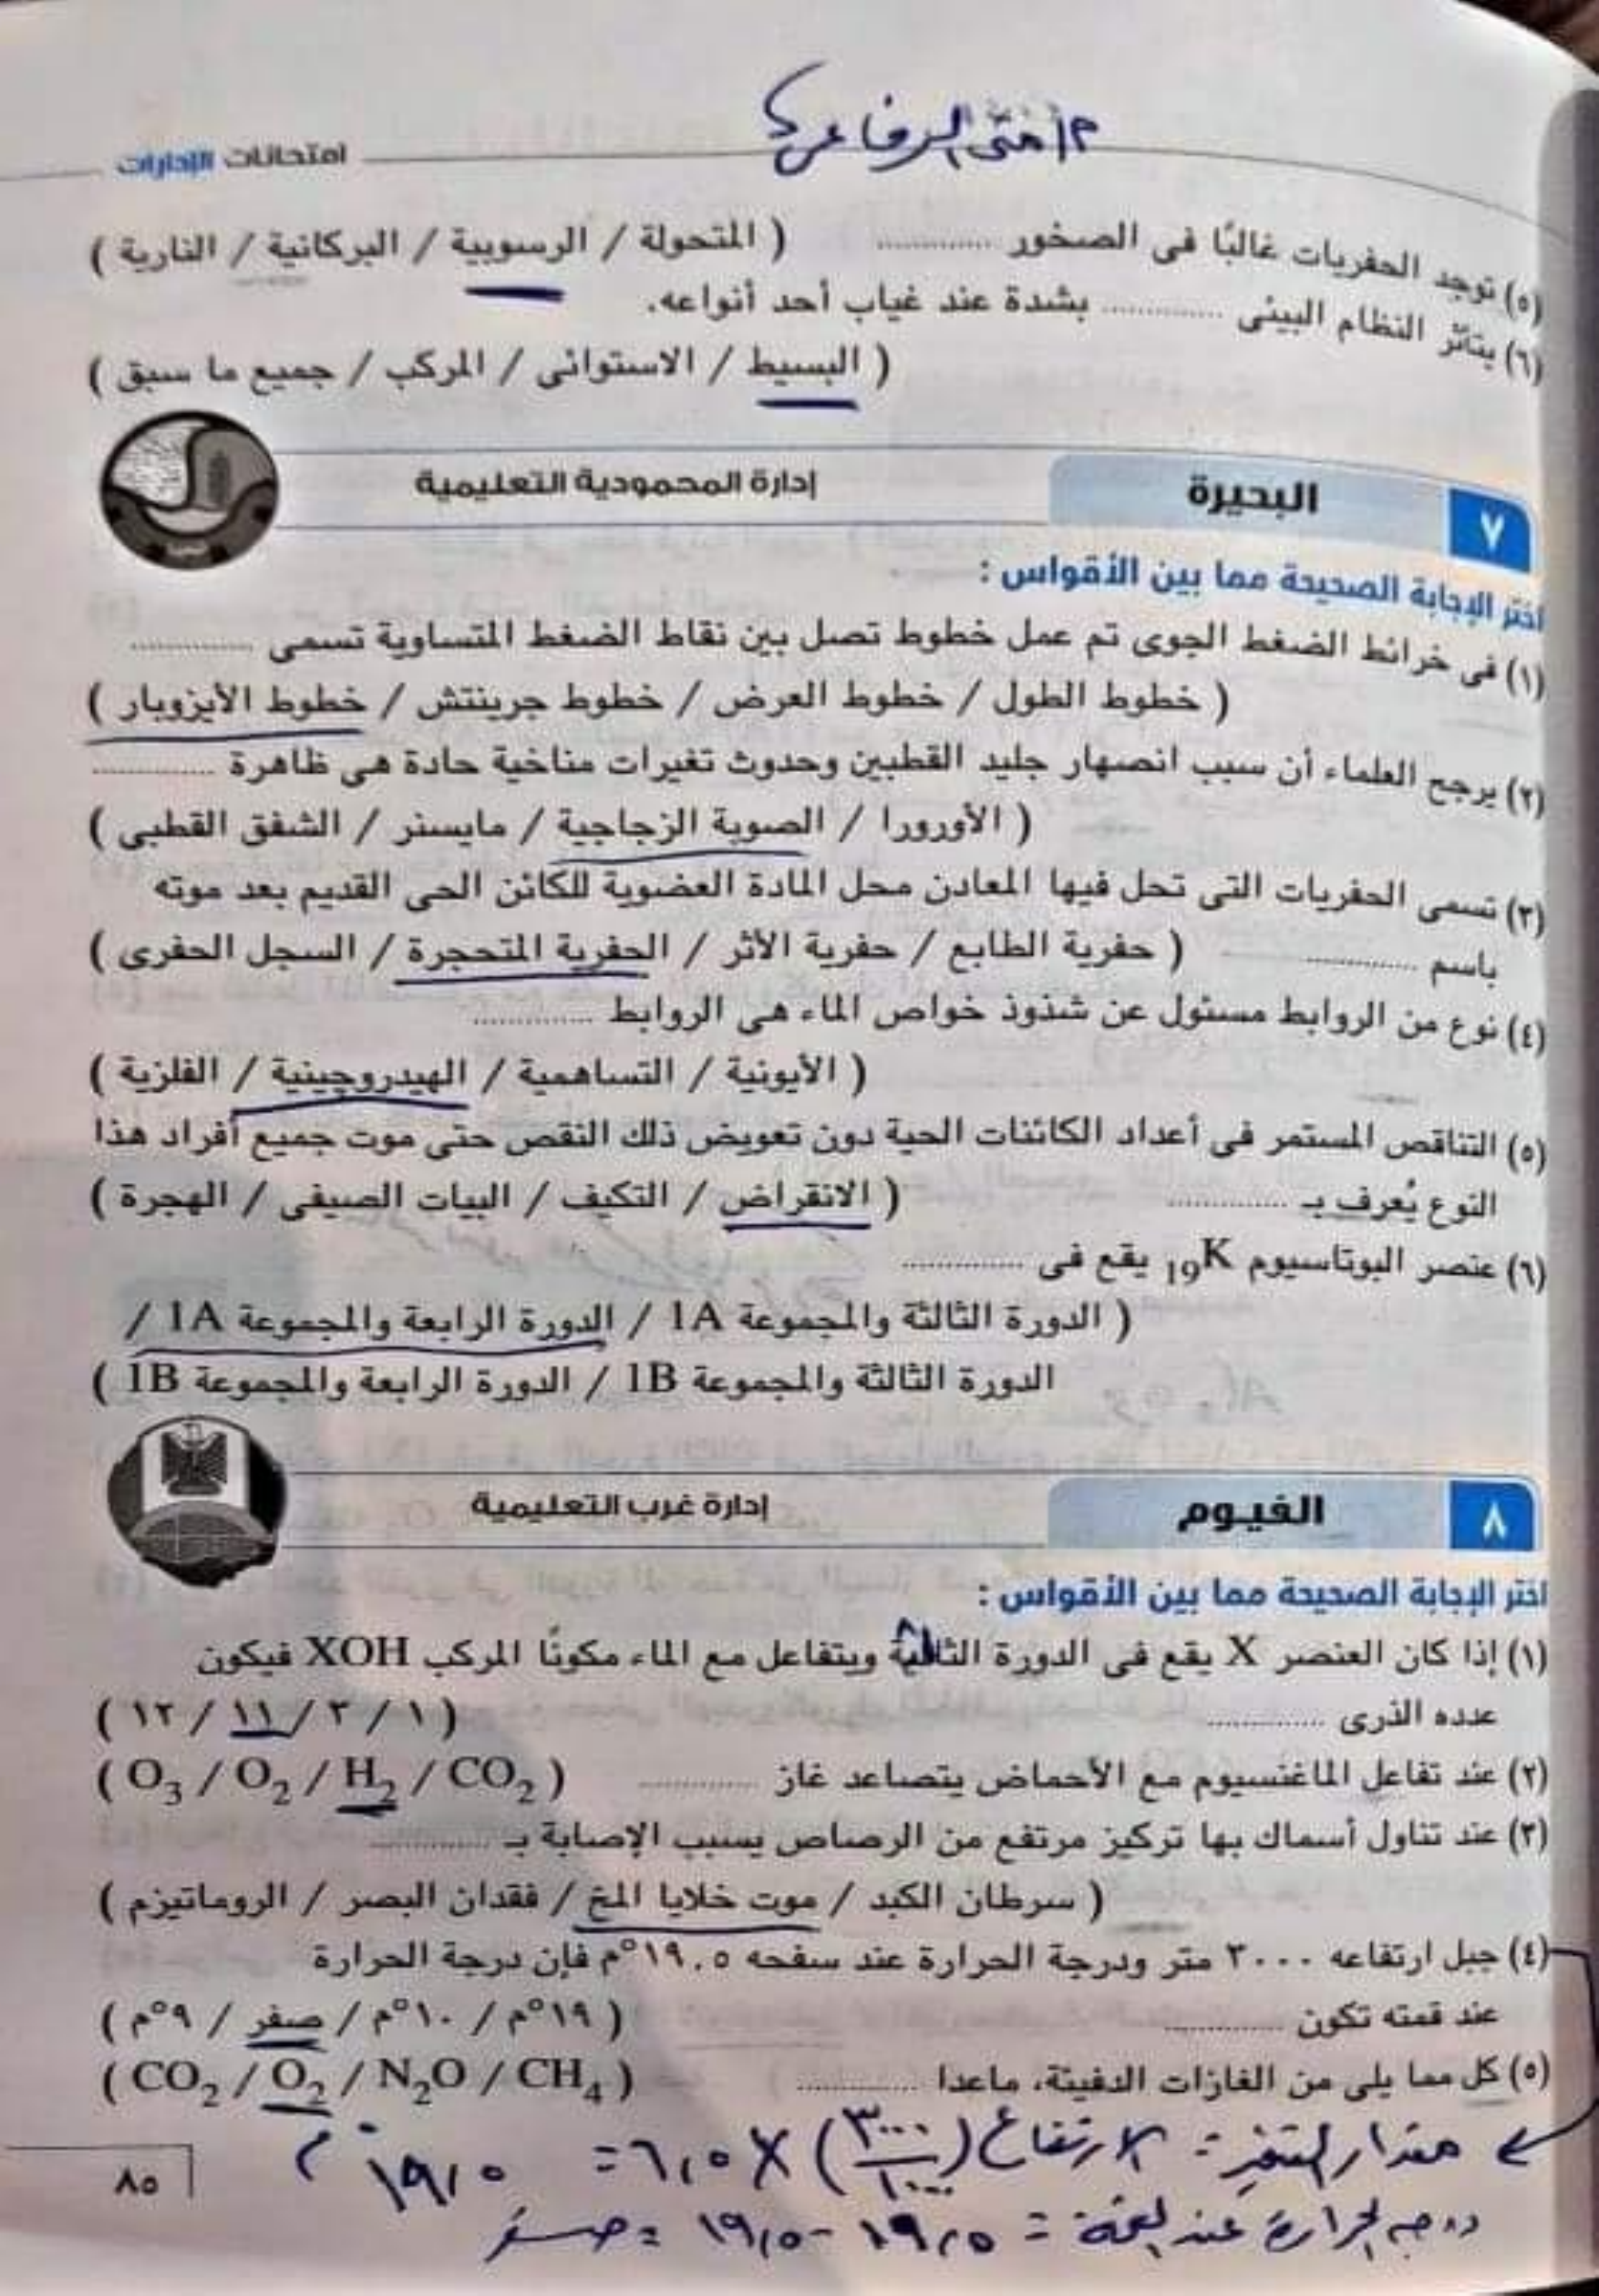 م/ منى الرفاعى
امتحانات الإدارات
(٥) توجد الحفريات غالبًا فى الصخور ............ ( المتحولة / الرسوبية / البركانية / النارية )
(٦) يتأثر النظام البيئى ............ بشدة عند غياب أحد أنواعه.
( البسيط / الاستوائى / المركب / جميع ما سبق )
٧ البحيرة إدارة المحمودية التعليمية
اختر الإجابة الصحيحة مما بين الأقواس :
(١) فى خرائط الضغط الجوى تم عمل خطوط تصل بين نقاط الضغط المتساوية تسمى ............
( خطوط الطول / خطوط العرض / خطوط جرينتش / خطوط الأيزوبار )
(٢) يرجح العلماء أن سبب انصهار جليد القطبين وحدوث تغيرات مناخية حادة هى ظاهرة ............
( الأورورا / الصوبة الزجاجية / مايسنر / الشفق القطبى )
(٣) تسمى الحفريات التى تحل فيها المعادن محل المادة العضوية للكائن الحى القديم بعد موته
باسم ............ ( حفرية الطابع / حفرية الأثر / الحفرية المتحجرة / السجل الحفرى )
(٤) نوع من الروابط مسئول عن شذوذ خواص الماء هى الروابط ............
( الأيونية / التساهمية / الهيدروچينية / الفلزية )
(٥) التناقص المستمر فى أعداد الكائنات الحية دون تعويض ذلك النقص حتى موت جميع أفراد هذا
النوع يُعرف بـ ............ ( الانقراض / التكيف / البيات الصيفى / الهجرة )
(٦) عنصر البوتاسيوم ₁₉K يقع فى ............
( الدورة الثالثة والمجموعة 1A / الدورة الرابعة والمجموعة 1A /
الدورة الثالثة والمجموعة 1B / الدورة الرابعة والمجموعة 1B )
٨ الفيوم إدارة غرب التعليمية
اختر الإجابة الصحيحة مما بين الأقواس :
(١) إذا كان العنصر X يقع فى الدورة الثالثة ويتفاعل مع الماء مكونًا المركب XOH فيكون
عدده الذرى ............ ( ١ / ٣ / ١١ / ١٢ )
(٢) عند تفاعل الماغنسيوم مع الأحماض يتصاعد غاز ............ ( O₃ / O₂ / H₂ / CO₂ )
(٣) عند تناول أسماك بها تركيز مرتفع من الرصاص يسبب الإصابة بـ ............
( سرطان الكبد / موت خلايا المخ / فقدان البصر / الروماتيزم )
(٤) جبل ارتفاعه ٣٠٠٠ متر ودرجة الحرارة عند سفحه ١٩.٥°م فإن درجة الحرارة
عند قمته تكون ............ ( ١٩°م / ١٠°م / صفر / ٩°م )
(٥) كل مما يلى من الغازات الدفيئة، ماعدا ............ ( CO₂ / O₂ / N₂O / CH₄ )
مقدار التغير = الارتفاع (٣٠٠٠/١٠٠٠) × ٦,٥ = ١٩,٥ °م
درجة الحرارة عند القمة = ١٩,٥ - ١٩,٥ = صفر
٨٥